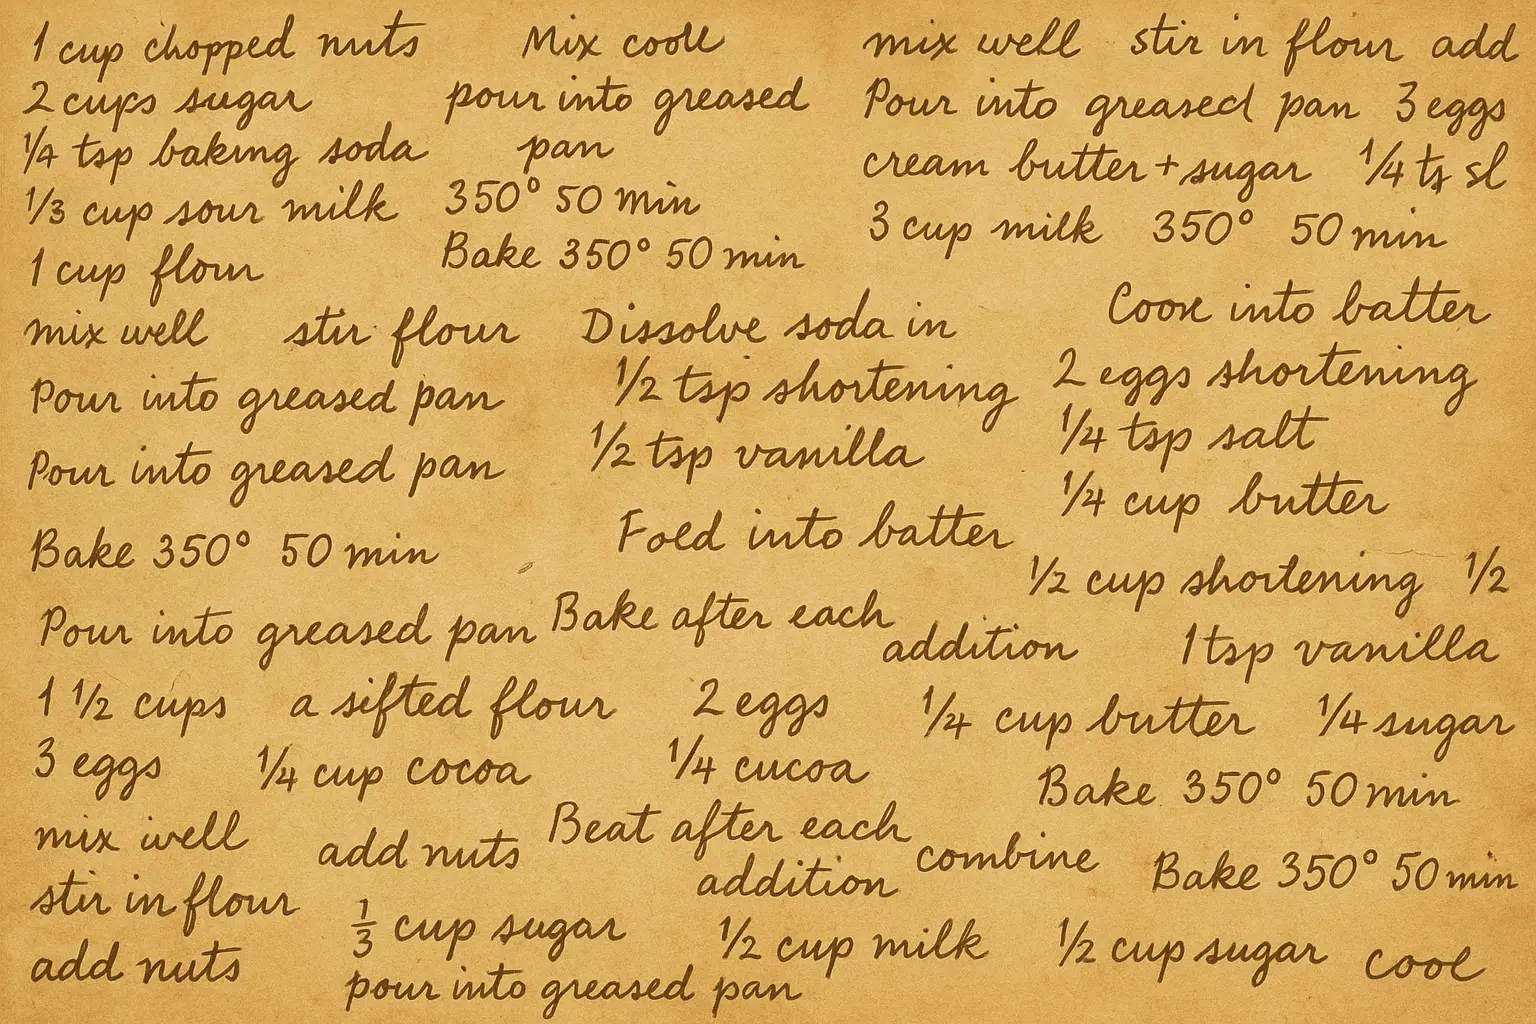 1 cup chopped nuts
2 cups sugar
1/4 tsp baking soda
1/3 cup sour milk
1 cup flour
Mix
pour into greased
pan
350° 50 min
Bake 350° 50 min
mix well stir in flour add
Pour into greased pan 3 eggs
cream butter + sugar 1/4 ts sl
3 cup milk 350° 50 min
mix well stir flour
Pour into greased pan
Pour into greased pan
Bake 350° 50 min
Dissolve soda in
1/2 tsp shortening
1/2 tsp vanilla
Fold into batter
into batter
2 eggs shortening
1/4 tsp salt
1/4 cup butter
1/2 cup shortening 1/2
Pour into greased pan
Bake after each
addition
1 tsp vanilla
1 1/2 cups a sifted flour 2 eggs 1/4 cup butter 1/4 sugar
3 eggs 1/4 cup cocoa 1/4 cucoa Bake 350° 50 min
mix well
stir in flour
add nuts
add nuts
Beat after each
addition
combine
Bake 350° 50 min
1/3 cup sugar
1/2 cup milk
1/2 cup sugar
cool
pour into greased pan